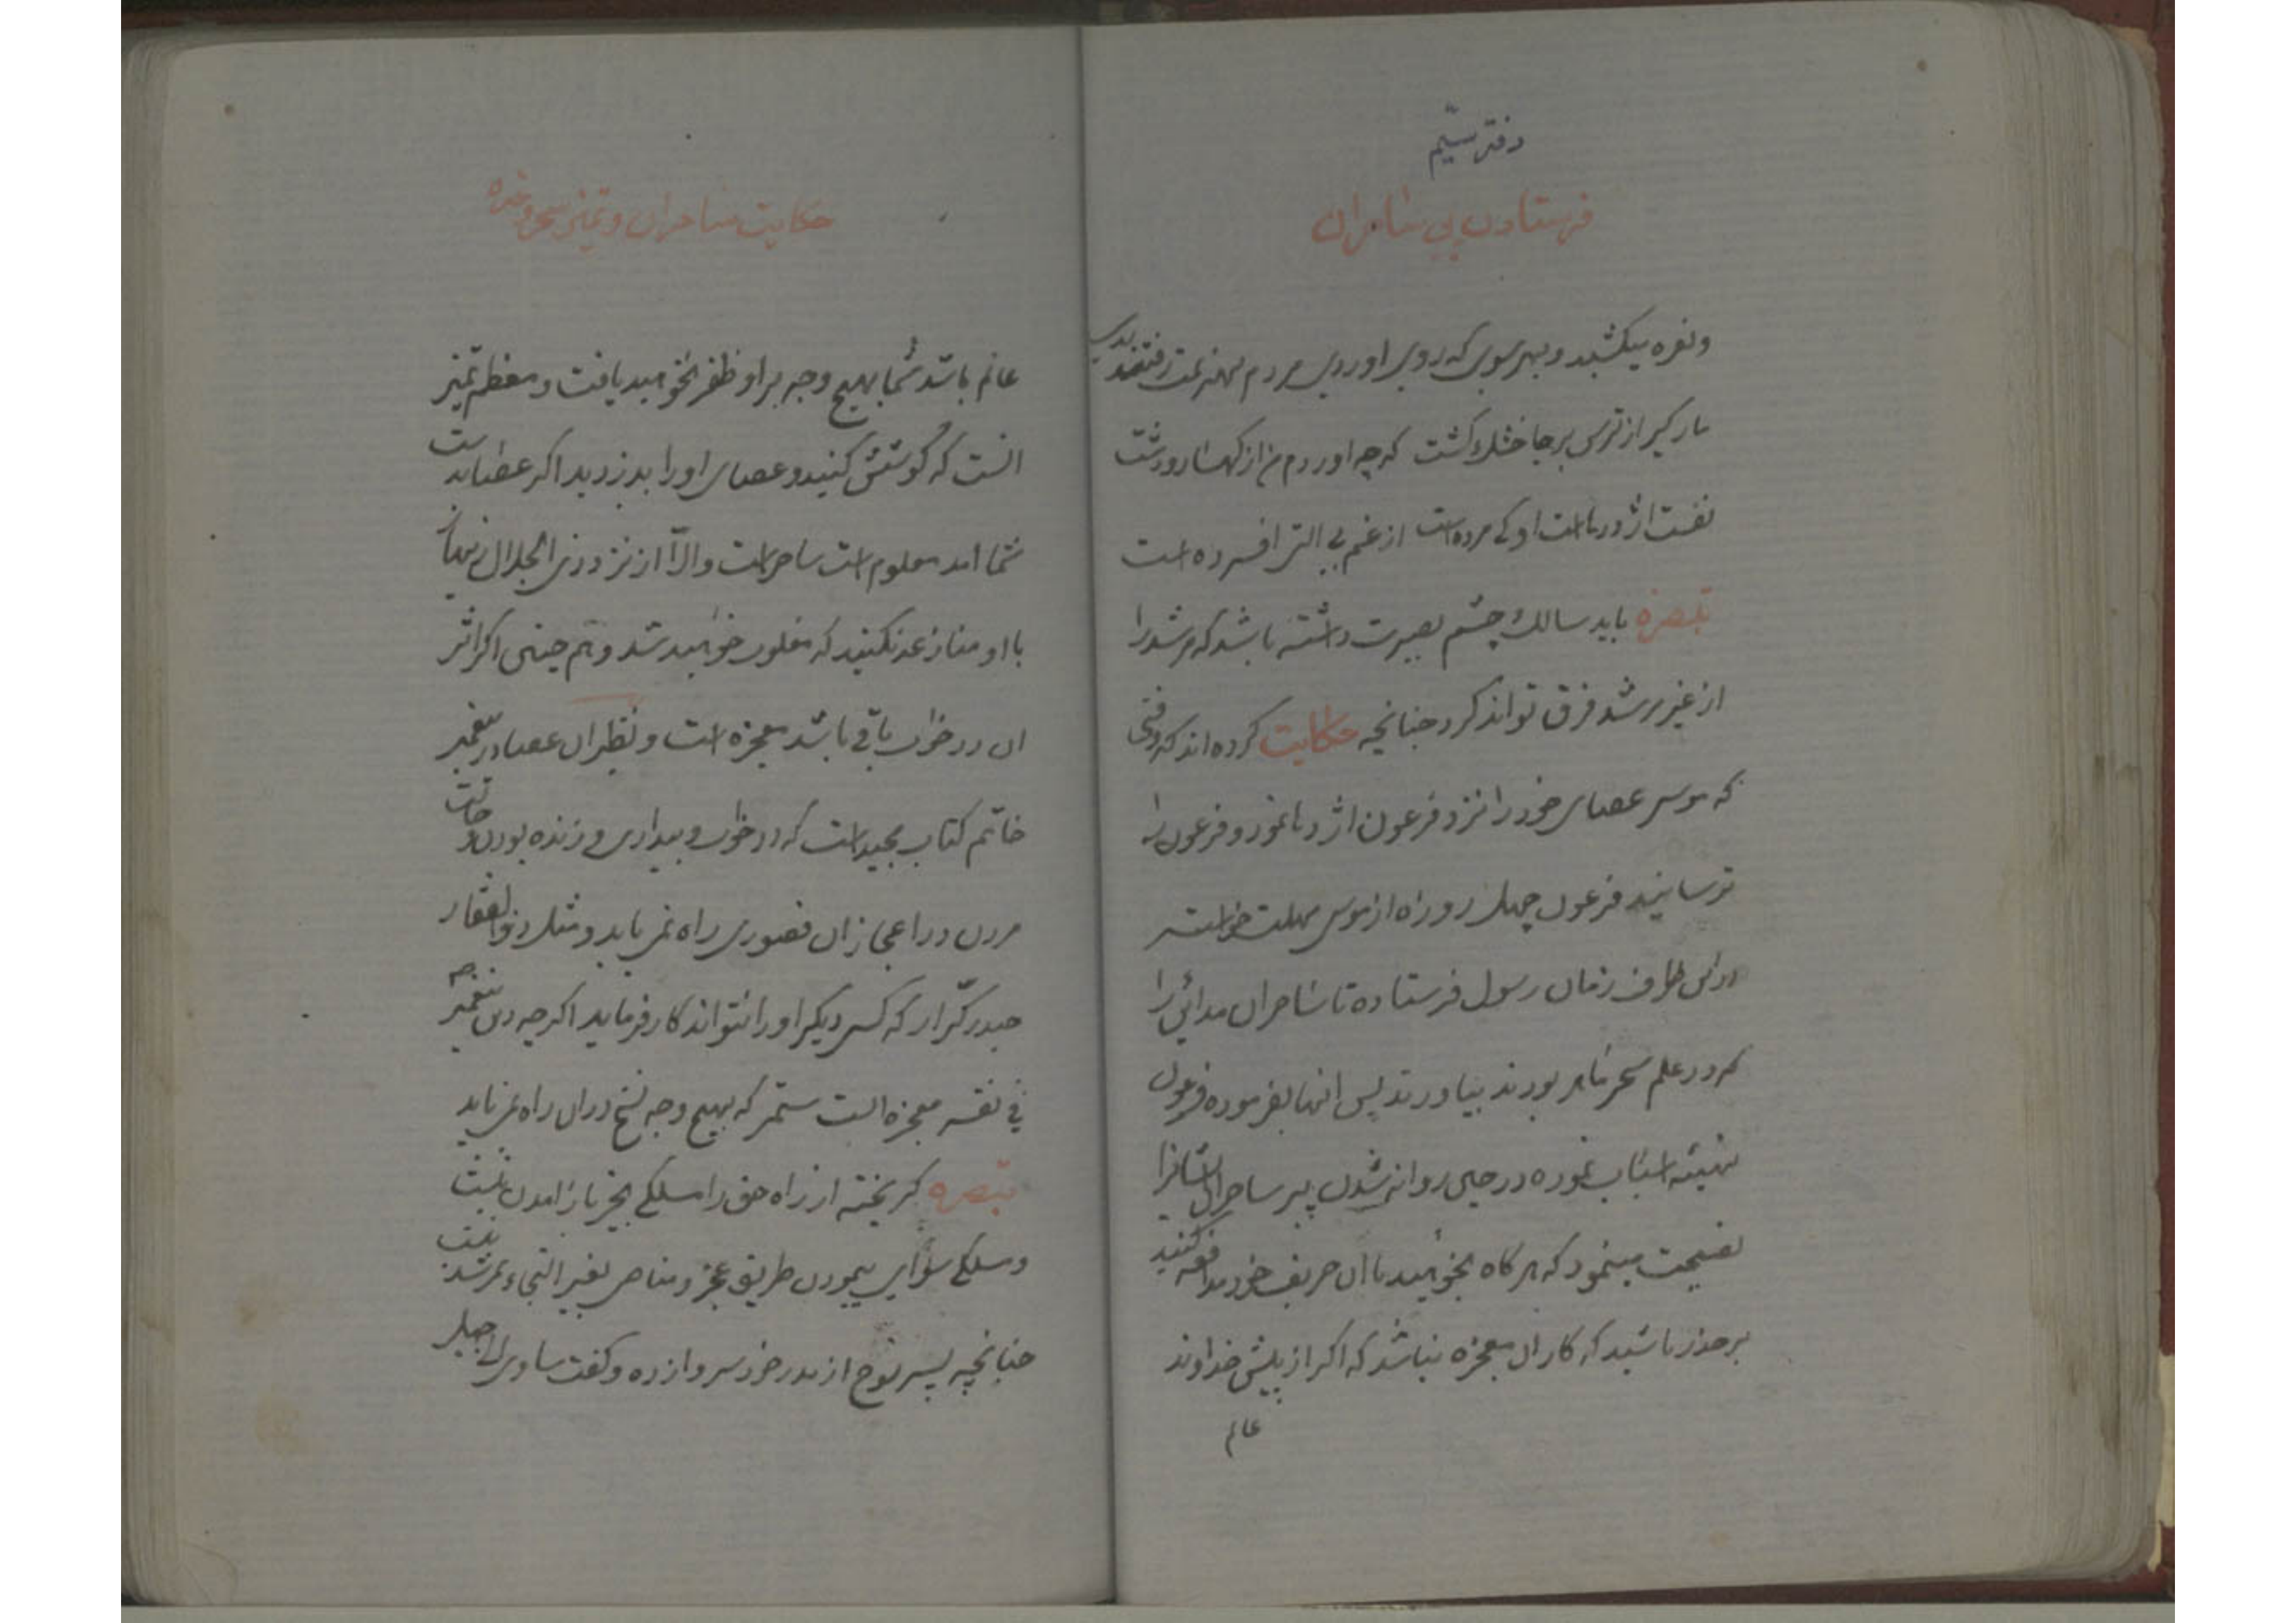 دفتر سیم
فرستادن پی ساحران
ونعره میکشید و بهر سوی که روی اوردی مردم بهزیمت رفتندی
مارکیر از ترس برجا خشک کشت که چه اوردم من از کهسار و دشت
نفست اژدرهاست او کی مرده است از غم بی التی افسرده است
تبصره باید سالک چشم بصیرت داشته باشد که مرشد را
از غیر مرشد فرق تواند کرد چنانچه حکایت کرده اند که وقتی
که موسی عصای خود را نزد فرعون اژدها نمود و فرعون را
ترسانید فرعون چهل روزه از موسی مهلت خواسته
باطراف زمان رسول فرستاده تا ساحران مدائن را
که در علم سحر ماهر بودند بیاورند پس انها بفرموده فرعون
تهیئه اسباب نموده در حین روانه شدن پیر ساحران ایشانرا
نصیحت مینمود که هرکاه بخواهید با ان حریف خود مدافعه کنید
برحذر باشید که کار ان معجزه نباشد که اکر از پیش خداوند
عالم
حکایت ساحران و تمیز سحر و معجزه
عالم باشد شما بهیچ وجه بر او ظفر نخواهید یافت و معظم تمیز
انست که کوشش کنید و عصای او را بدزدید اکر عصا بدست
شما امد معلوم است ساحر است والّا از نزد ذی الجلال
با او منازعه نکنید که مغلوب خواهید شد و هم چنین اکر اثر
ان در خواب باقی باشد معجزه است و نظیر ان عصا در پیغمبر
خاتم کتاب مجید است که در خواب و بیداری و زنده بودن و حالت
مردن در اعجاز ان قصوری راه نمی یابد و مثل ذوالفقار
حیدر کرّار که کس دیکر او را نتواند کار فرماید اکرچه دین پیغمبر
فی نفسه معجزه است مستمر که بهیچ وجه نسخ در ان راه نمی یابد
تبصره کریخته از راه حق را مسلکی بجز باز امدن نیست
و مسلکی سوای پیمودن طریق عجز و مناص بغیر التجاء بمرشد نیست
چنانچه پسر نوح از پدر خود سر وازده و کفت ساوی الی جبل